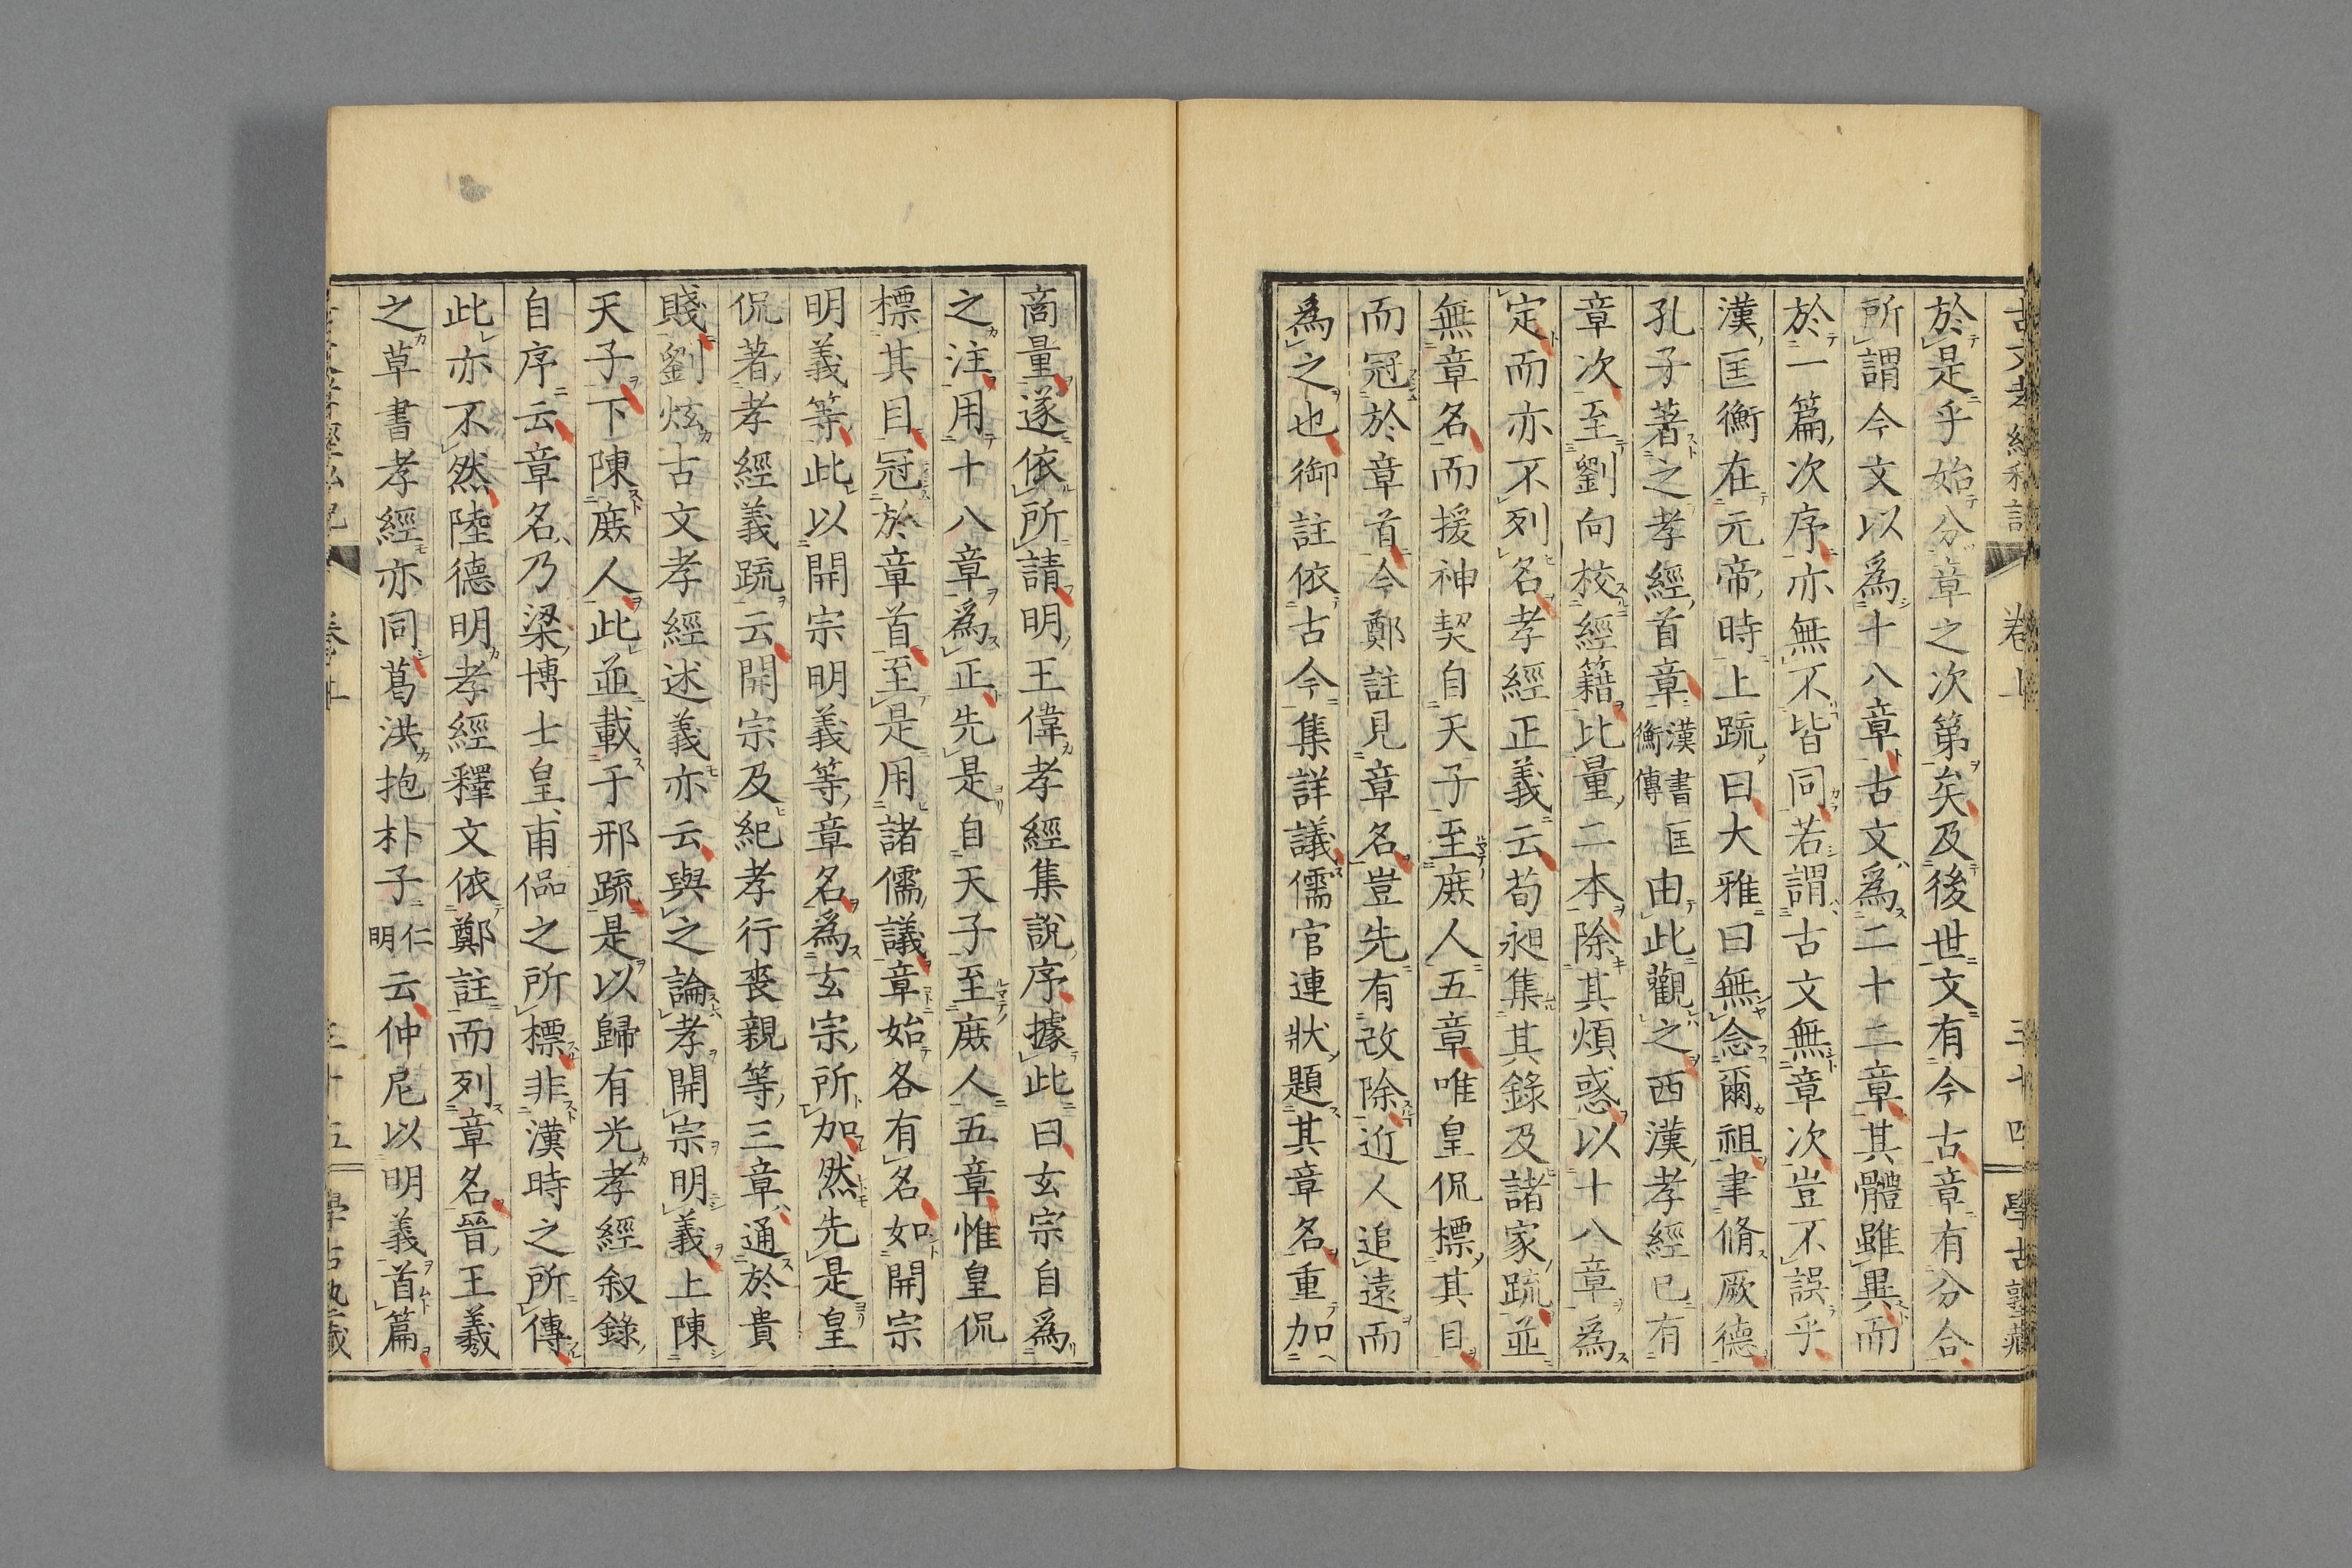 於是乎始分章之次第矣及後世文有今古章有分合
所謂今文以為十八章古文為二十二章其體雖異而
於一篇次序亦無不皆同若謂古文無章次豈不誤乎
漢匡衡在元帝時上疏曰大雅曰無念爾祖聿脩厥德
孔子著之孝經首章漢書匡衡傳由此觀之西漢孝經已有
章次至劉向校經籍比量二本除其煩惑以十八章為
定而亦不列名孝經正義云荀昶集其錄及諸家疏並
無章名而援神契自天子至庶人五章唯皇侃標其目
而冠於章首今鄭註見章名豈先有改除近人追遠而
為之也御註依古今集詳議儒官連狀題其章名重加
商量遂依所請明王偉孝經集說序據此曰玄宗自為
之注用十八章為正先是自天子至庶人五章惟皇侃
標其目冠於章首至是用諸儒議章始各有名如開宗
明義等此以開宗明義等章名為玄宗所加然先是皇
侃著孝經義疏云開宗及紀孝行喪親等三章通於貴
賤劉炫古文孝經述義亦云與之論孝開宗明義上陳
天子下陳庶人此並載于邢疏是以歸有光孝經叙錄
自序云章名乃梁博士皇甫侃之所標非漢時之所傳
此亦不然陸德明孝經釋文依鄭註而列章名晉王羲
之草書孝經亦同葛洪抱朴子仁明云仲尼以明義首篇